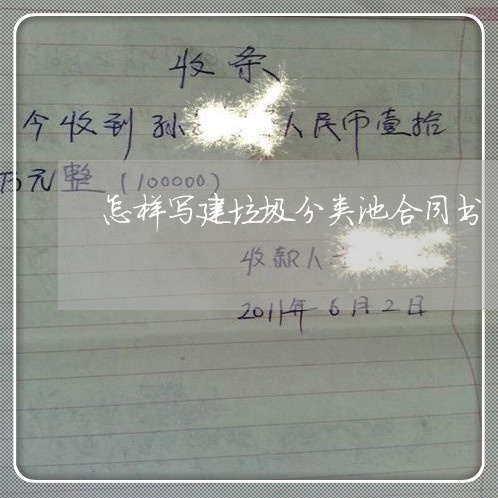 收条
今收到孙 人民币壹拾
万元整(100000)
怎样写建垃圾分类池合同书
收款人
2011年6月2日